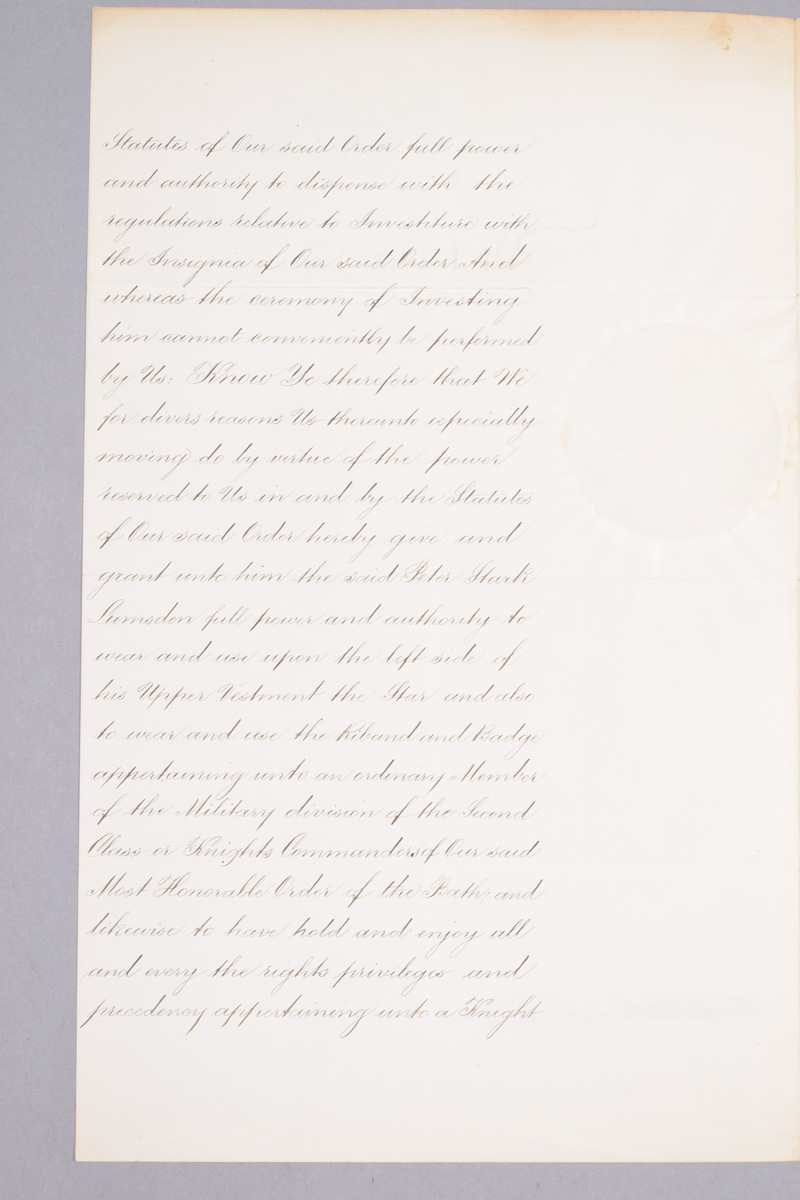 Statutes of Our said Order full power
and authority to dispense with the
regulations relative to Investiture with
the Insignia of Our said Order And
whereas the ceremony of Investing
him cannot conveniently be performed
by Us: Know Ye therefore that We
for divers reasons Us thereunto especially
moving do by virtue of the power
reserved to Us in and by the Statutes
of Our said Order hereby give and
grant unto him the said Peter Stark
Lumsden full power and authority to
wear and use upon the left side of
his Upper Vestment the Star, and also
to wear and use the Riband and Badge
appertaining unto an ordinary Member
of the Military division of the Second
Class or Knights Commanders of Our said
Most Honorable Order of the Bath; and
likewise to have hold and enjoy all
and every the rights privileges and
precedency appertaining unto a Knight